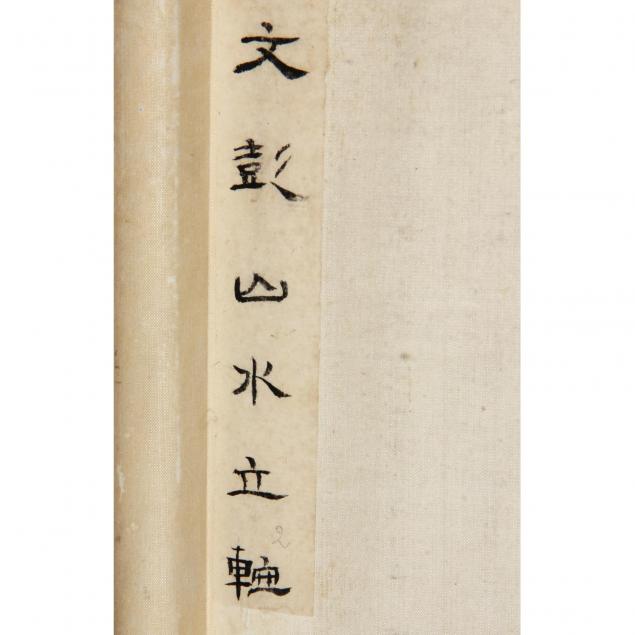 文彭山水立軸
2